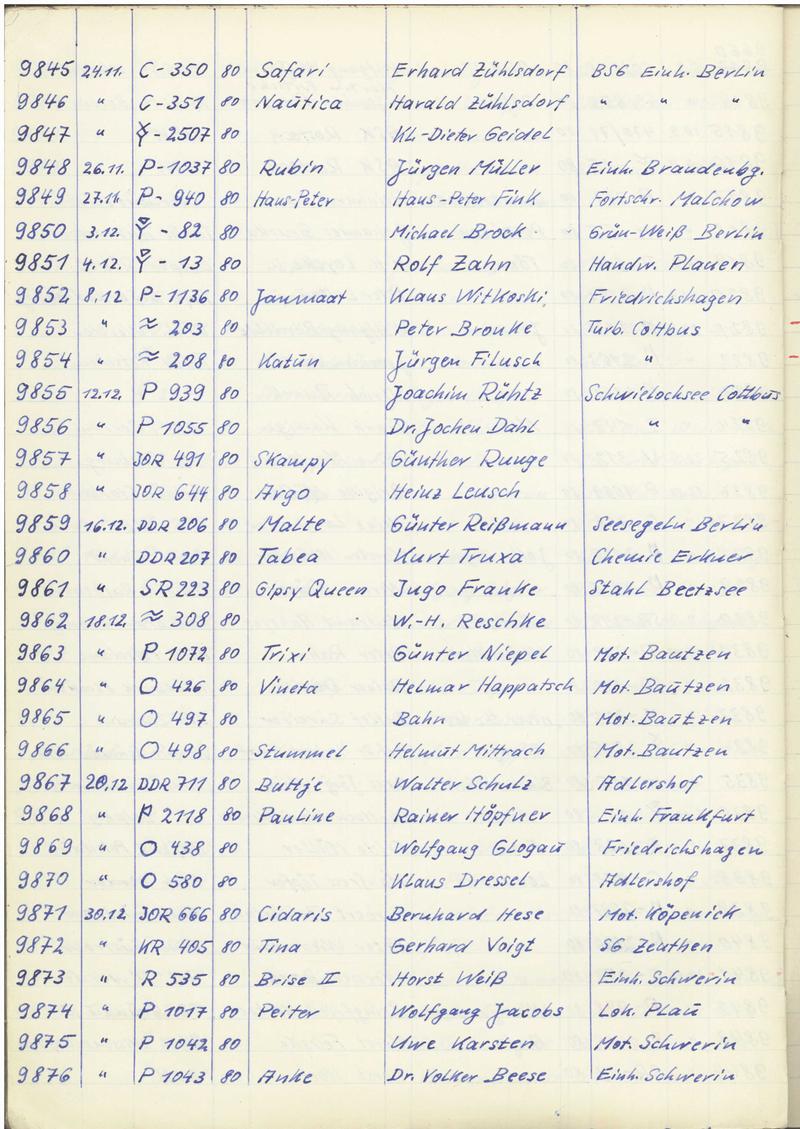 9845 24.11. C-350 80 Safari Erhard Zühlsdorf BSG Einh. Berlin
9846 " C-351 80 Nautica Harald Zühlsdorf " " "
9847 " -2507 80 Kl-Dieter Geidel
9848 26.11. P-1037 80 Rubin Jürgen Müller Einh. Brandenbg.
9849 27.11. P-940 80 Hans-Peter Hans-Peter Fink Fortschr. Malchow
9850 3.12. -82 80 Michael Brock Grün-Weiß Berlin
9851 4.12. -13 80 Rolf Zahn Handw. Plauen
9852 8.12 P-1136 80 Janmaat Klaus Witkoski Friedrichshagen
9853 " ≈ 203 80 Peter Bronke Turb. Cottbus
9854 " ≈ 208 80 Katun Jürgen Filusch "
9855 12.12. P 939 80 Joachim Rühtz Schwielochsee Cottbus
9856 " P 1055 80 Dr. Jochen Dahl " "
9857 " JOR 491 80 Skampy Günther Runge
9858 " JOR 644 80 Argo Heinz Leusch
9859 16.12. DDR 206 80 Malte Günter Reißmann Seesegeln Berlin
9860 " DDR 207 80 Tabea Kurt Truxa Chemie Erkner
9861 " SR 223 80 Gipsy Queen Ingo Franke Stahl Beetzsee
9862 18.12. ≈ 308 80 W.-H. Reschke
9863 " P 1072 80 Trixi Günter Niepel Mot. Bautzen
9864 " O 426 80 Vineta Helmar Happatsch Mot. Bautzen
9865 " O 497 80 Bahn Mot. Bautzen
9866 " O 498 80 Stummel Helmut Mittrach Mot. Bautzen
9867 20.12 DDR 711 80 Buttje Walter Schulz Adlershof
9868 " P 2118 80 Pauline Rainer Höpfner Einh. Frankfurt
9869 " O 438 80 Wolfgang Glogau Friedrichshagen
9870 " O 580 80 Klaus Dressel Adlershof
9871 30.12 JOR 666 80 Cidaris Bernhard Hese Mot. Köpenick
9872 " KR 405 80 Tina Gerhard Voigt SG Zeuthen
9873 " R 535 80 Brise II Horst Weiß Einh. Schwerin
9874 " P 1017 80 Peiter Wolfgang Jacobs Lok. Plau
9875 " P 1042 80 Uwe Karsten Mot. Schwerin
9876 " P 1043 80 Anke Dr. Volker Beese Einh. Schwerin